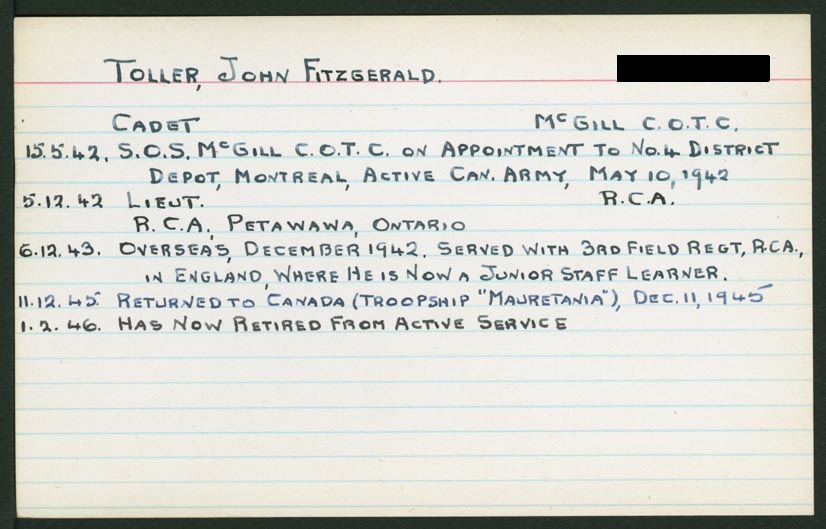 TOLLER, JOHN FITZGERALD.
CADET McGILL C.O.T.C.
15.5.42. S.O.S. McGILL C.O.T.C. ON APPOINTMENT TO No.4 DISTRICT
DEPOT, MONTREAL, ACTIVE CAN. ARMY, MAY 10, 1942
5.12.42 LIEUT. R.C.A.
R.C.A. PETAWAWA, ONTARIO
6.12.43. OVERSEAS, DECEMBER 1942. SERVED WITH 3RD FIELD REGT, R.C.A.,
IN ENGLAND, WHERE HE IS NOW A JUNIOR STAFF LEARNER.
11.12.45 RETURNED TO CANADA (TROOPSHIP "MAURETANIA"), DEC. 11, 1945
1.2.46. HAS NOW RETIRED FROM ACTIVE SERVICE